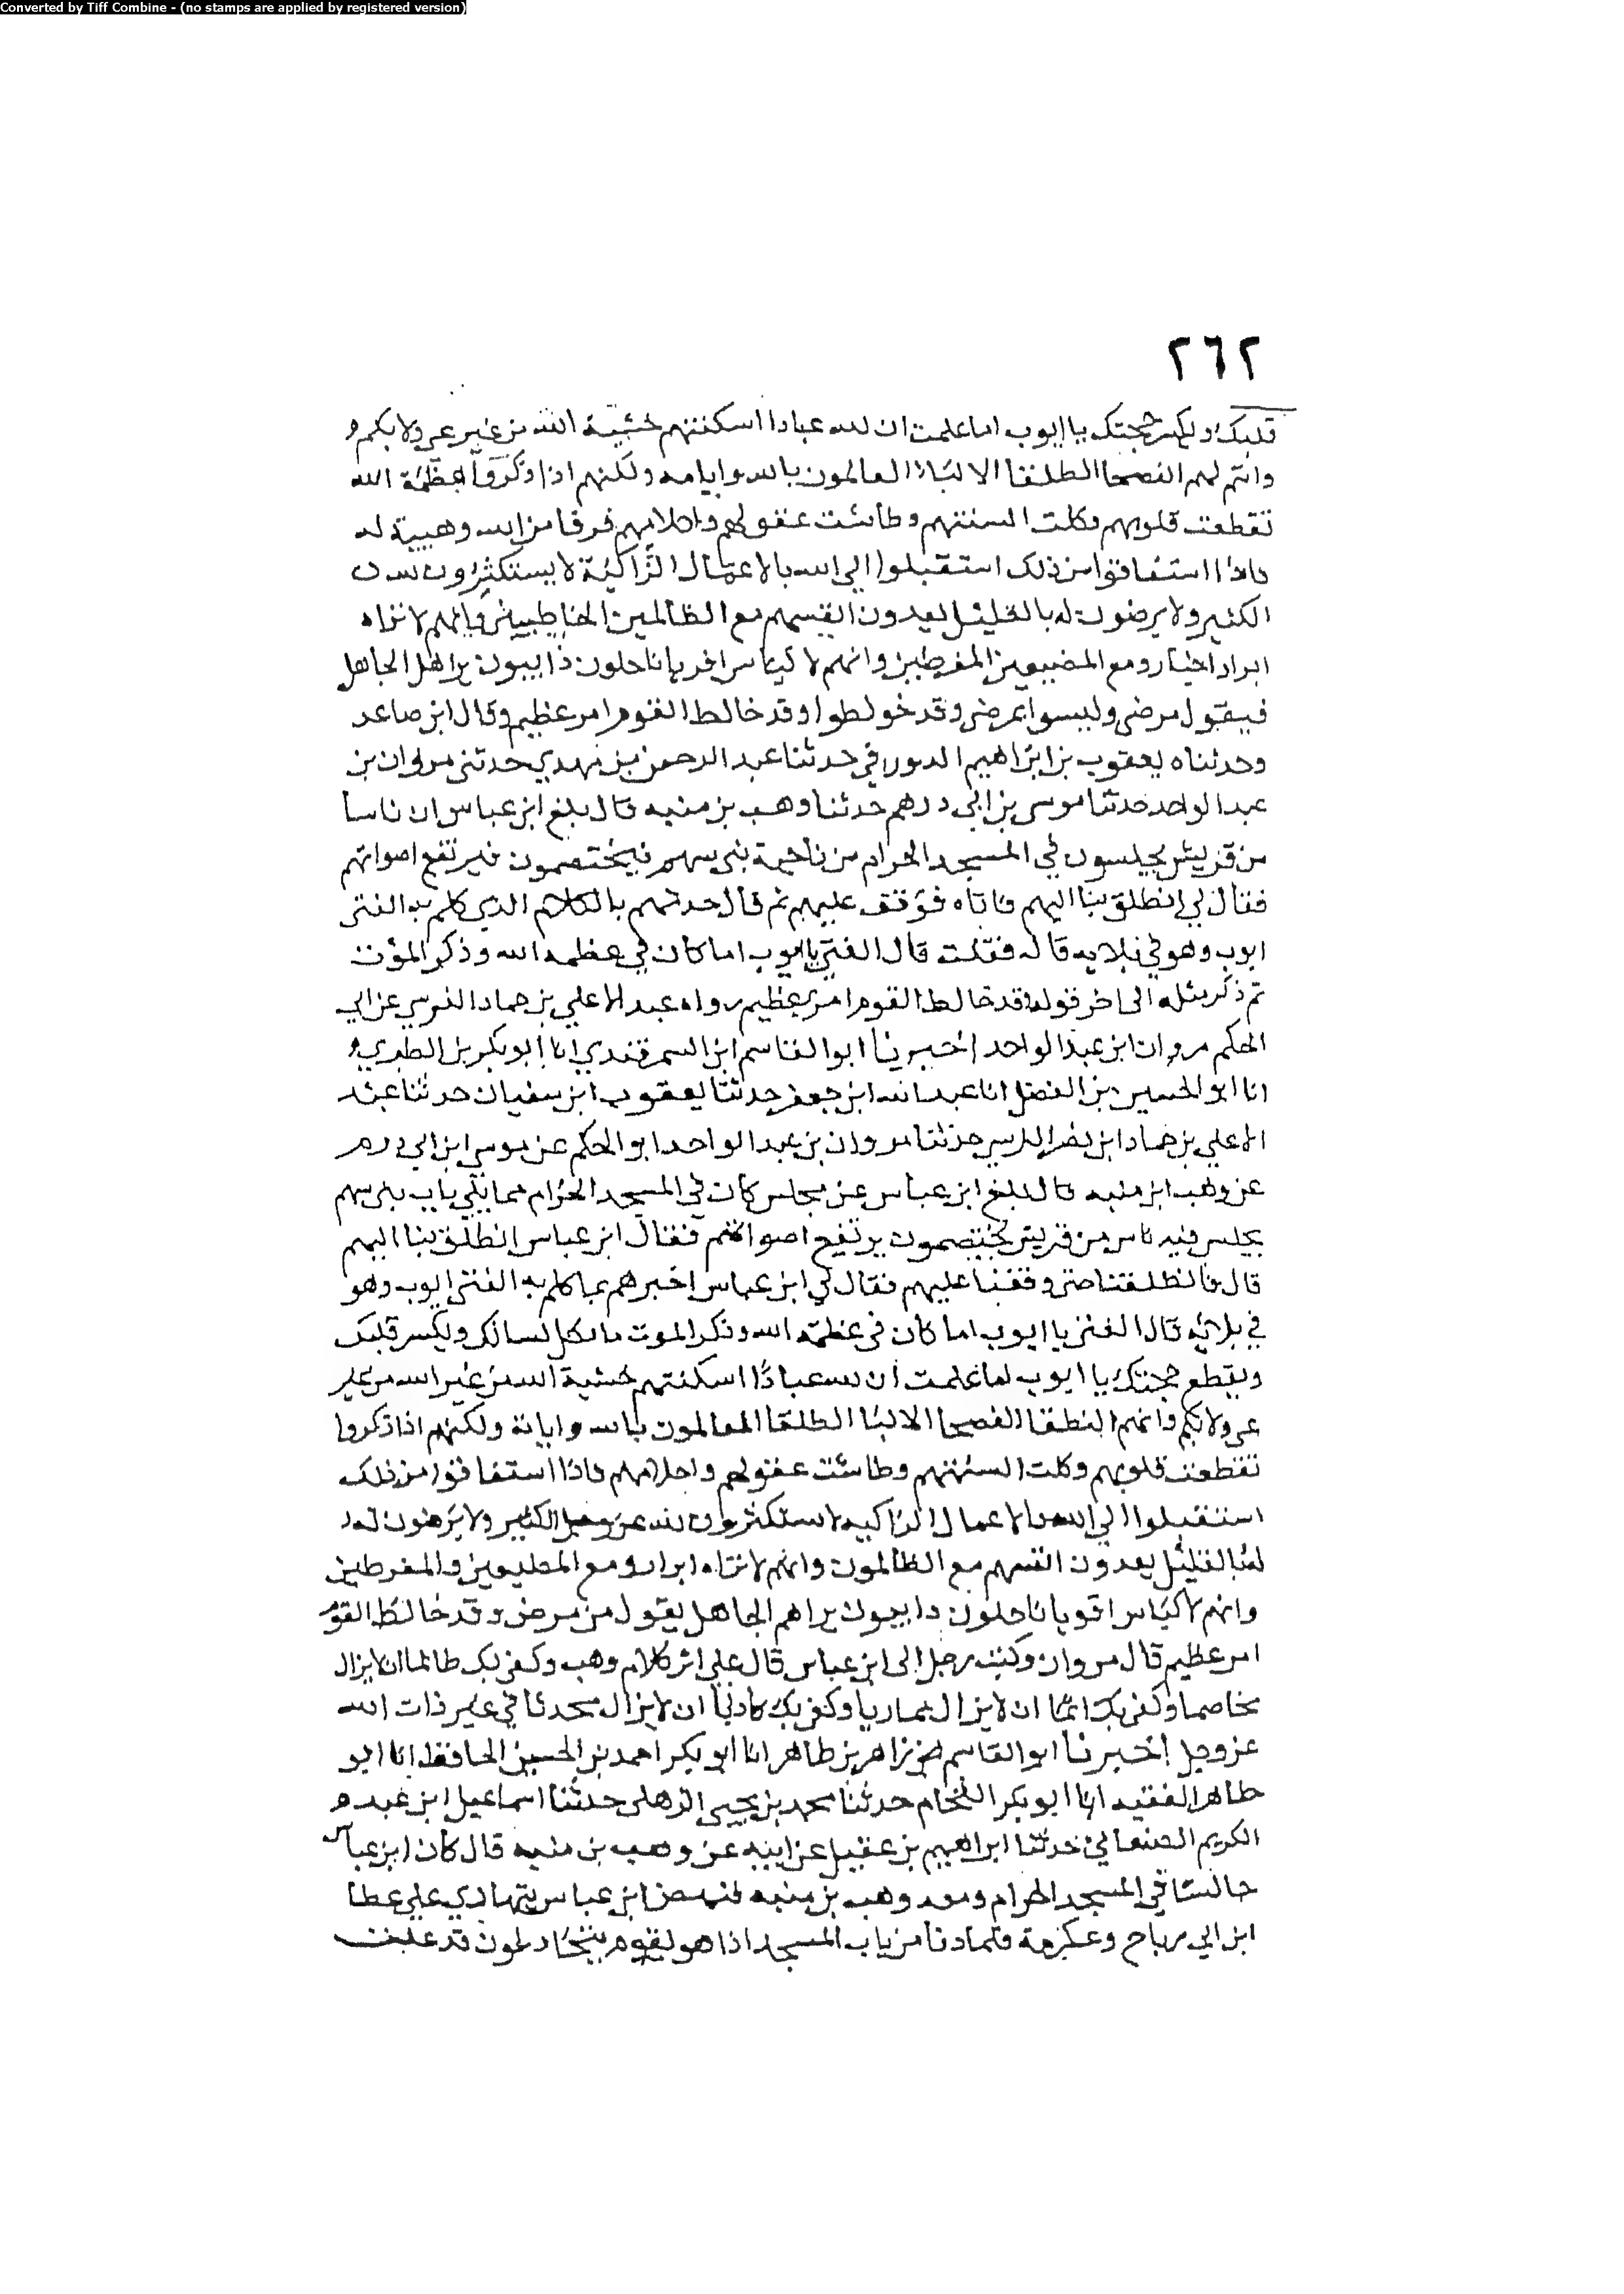 Converted by Tiff Combine - (no stamps are applied by registered version)
٢٦٢
قلبك ويكسر حجتك يا ايوب اما علمت ان لله عبادا اسكنتهم خشية الله من غير عي ولا بكم
وانهم لهم الفصحا الطلقا الالبا العالمون بالله وايامه ولكنهم اذا ذكروا عظمة الله
تقطعت قلوبهم وكلت السنتهم وطاشت عقولهم واحلامهم فرقا من الله وهيبة له
فاذا استفاقوا من ذلك استقبلوا الى الله بالاعمال الزاكية لا يستكثرون لله
الكثير ولا يرضون له بالقليل يعدون انفسهم مع الظالمين الخاطيين وانهم لانزاه
ابرار اخيار ومع المضيعين المفرطين وانهم لاكياس اقويا ناحلون ذايبون يراهم الجاهل
فيقول مرضى وليسوا بمرضى وقد خولطوا وقد خالط القوم امر عظيم وقال ابن صاعد
وحدثناه يعقوب بن ابراهيم الدورقي حدثنا عبد الرحمن بن مهدي حدثني مروان بن
عبد الواحد حدثنا موسى بن ابي درهم حدثنا وهب بن منبه قال بلغ ابن عباس ان ناسا
من قريش يجلسون في المسجد الحرام من ناحية بني سهم فيختصمون فيرتفع اصواتهم
فقال لي انطلق بنا اليهم فاتاه فوقف عليهم ثم قال حدثهم بالكلام الذي كلم به الفتى
ايوب وهو في بلايه قال فقلت قال الفتى يا ايوب اما كان في عظمه الله وذكر الموت
ثم ذكر مثله الى اخر قوله وقد خالط القوم امر عظيم رواه عبد الاعلي بن حماد النرسي عن ابي
الحكم مروان ابن عبد الواحد اخبرنا ابو القاسم ابن السمرقندي انا ابو بكر بن الطبري
انا ابو الحسين بن الفضل انا عبد الله ابن جعفر حدثنا يعقوب ابن سفيان حدثنا عبد
الاعلي بن حماد ابن نصر النرسي حدثنا مروان بن عبد الواحد ابو الحكم عن موسي ابن ابي درم
عن وهب ابن منبه قال بلغ ابن عباس عن مجلس كان في المسجد الحرام مما يلي باب بني سهم
يجلس فيه ناس من قريش يختصمون يرتفع اصواتهم فقال ابن عباس انطلق بنا اليهم
قال فانطلقنا حتى وقفنا عليهم فقال لي ابن عباس اخبرهم بما كلم به الفتى ايوب وهو
في بلائه قال الفتى يا ايوب اما كان في عظمة الله وذكر الموت ما يكل لسانك ويكسر قلبك
ويقطع حجتك يا ايوب اما علمت ان لله عبادًا اسكنتهم خشية الله من غير
عي ولا بكم وانهم النطقا الفصحا الالبا الطلقا العالمون بالله واياته ولكنهم اذا ذكروا
تقطعت قلوبهم وكلت السنتهم وطاشت عقولهم واحلامهم فاذا استفاقوا من ذلك
استقبلوا الى الله بالاعمال الزاكيه لا يستكثرون لله عز وجل الكثير ولا يرضون له
بالقليل يعدون انفسهم مع الظالمون وانهم لانزاه ابرار ومع المضيعين والمفرطين
وانهم لاكياس اقويا ناحلون دايبون يراهم الجاهل يقول من مرض وقد خالط القوم
امر عظيم قال مروان وكتب رجل الى ابن عباس قال علي اثر كلام وهب وكفى بك ظالما ان لا يزال
مخاصما وكفى بك اثما ان لا يزال مماريا وكفى بك كاذبا ان لا يزال محدثا في غير ذات الله
عز وجل اخبرنا ابو القاسم زاهر بن طاهر انا ابو بكر احمد بن الحسين الحافظ انا ابو
طاهر الفقيه انا ابو بكر الفحام حدثنا محمد بن يحيى الذهلي حدثنا اسماعيل ابن عبد
الكريم الصنعاني حدثنا ابراهيم بن عقيل عن ابيه عن وهب بن منبه قال كان ابن عباس
جالسًا في المسجد الحرام ومعه وهب بن منبه فنهض ابن عباس يتهادي علي عطا
ابن ابي رباح وعكرمة فلما دنا من باب المسجد اذا هو بقوم يتجادلون قد علت